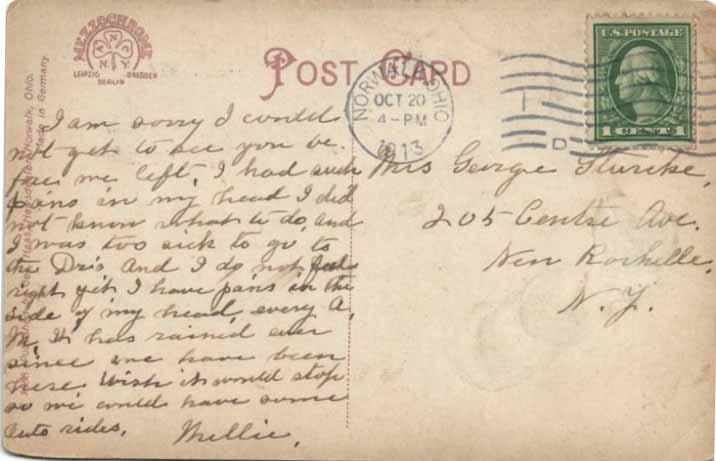 MEZZOCHROME
A N C
N.Y.
LEIPZIG DRESDEN
BERLIN
POST CARD
NORWALK, OHIO
OCT 20
4-PM
1913
U.S. POSTAGE
1 CENT 1
Norwalk, Ohio.
Made in Germany
I am sorry I could
not get to see you be
fore we left, I had such
pans in my head I did
not know what to do, and
I was too sick to go to
the Drs. And I do not feel
right yet I have pans in the
side of my head every A.
M. It has rained ever
since we have been
here. Wish it would stop
so we could have some
Auto rides. Millie.
Mrs George Sturcke,
205 Centre Ave.
New Rochelle,
N.Y.